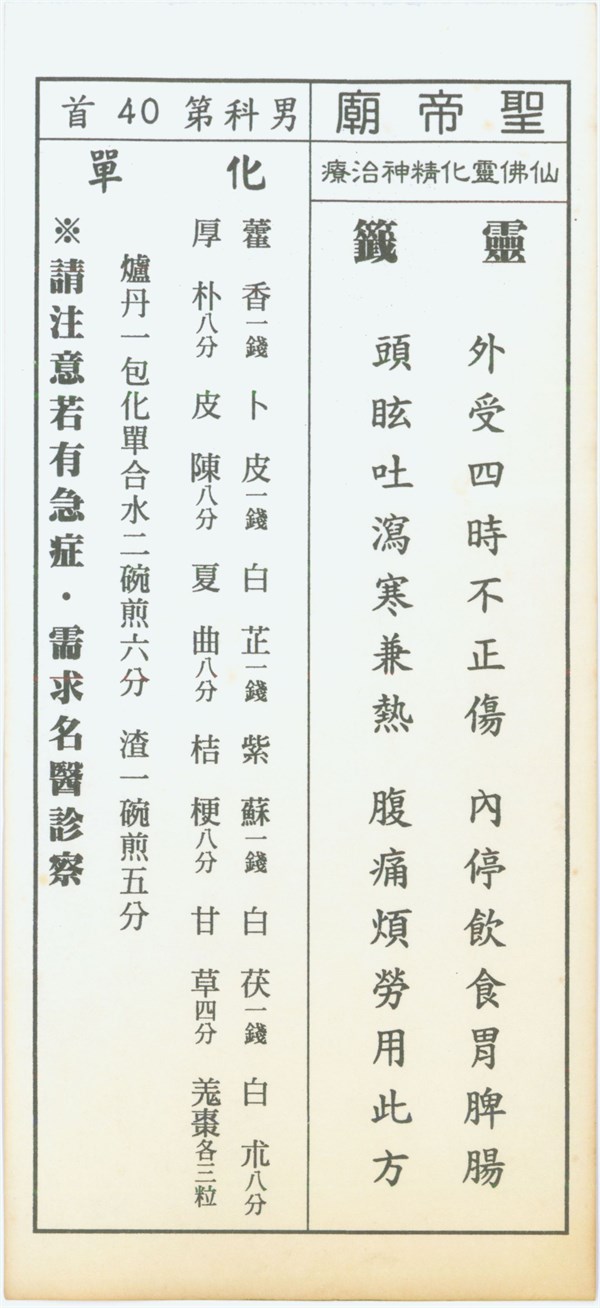 聖帝廟
仙佛靈化精神治療
靈籤
外受四時不正傷 內停飲食胃脾腸
頭眩吐瀉寒兼熱 腹痛煩勞用此方
男科第40首
化單
藿香一錢 卜皮一錢 白芷一錢 紫蘇一錢 白茯一錢 白朮八分
厚朴八分 皮陳八分 夏曲八分 桔梗八分 甘草四分 羌棗各三粒
爐丹一包化單合水二碗煎六分 渣一碗煎五分
※請注意若有急症・需求名醫診察